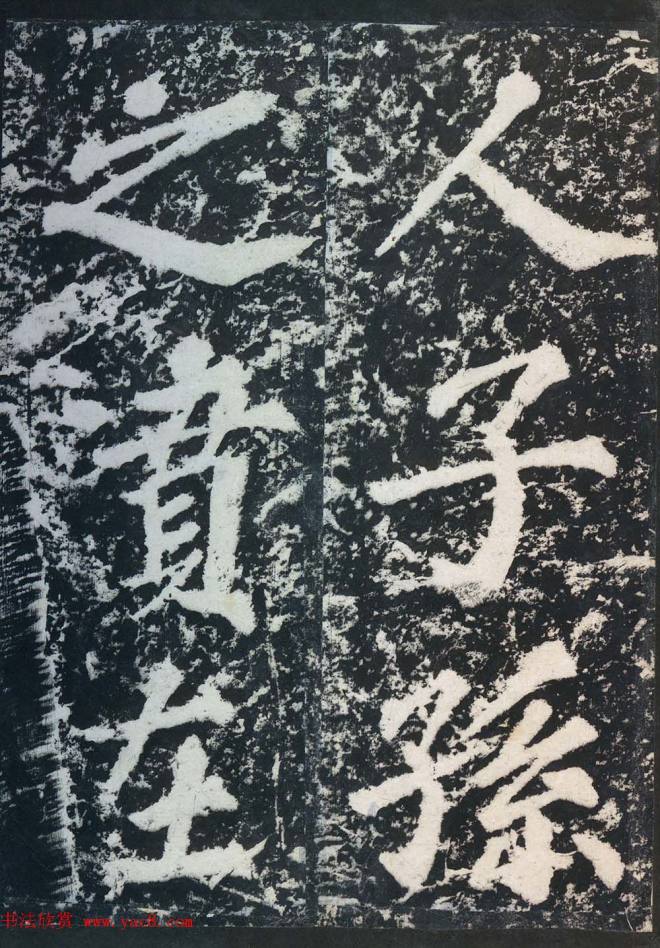 人子孫
之責在
书法欣赏 www.yac8.com